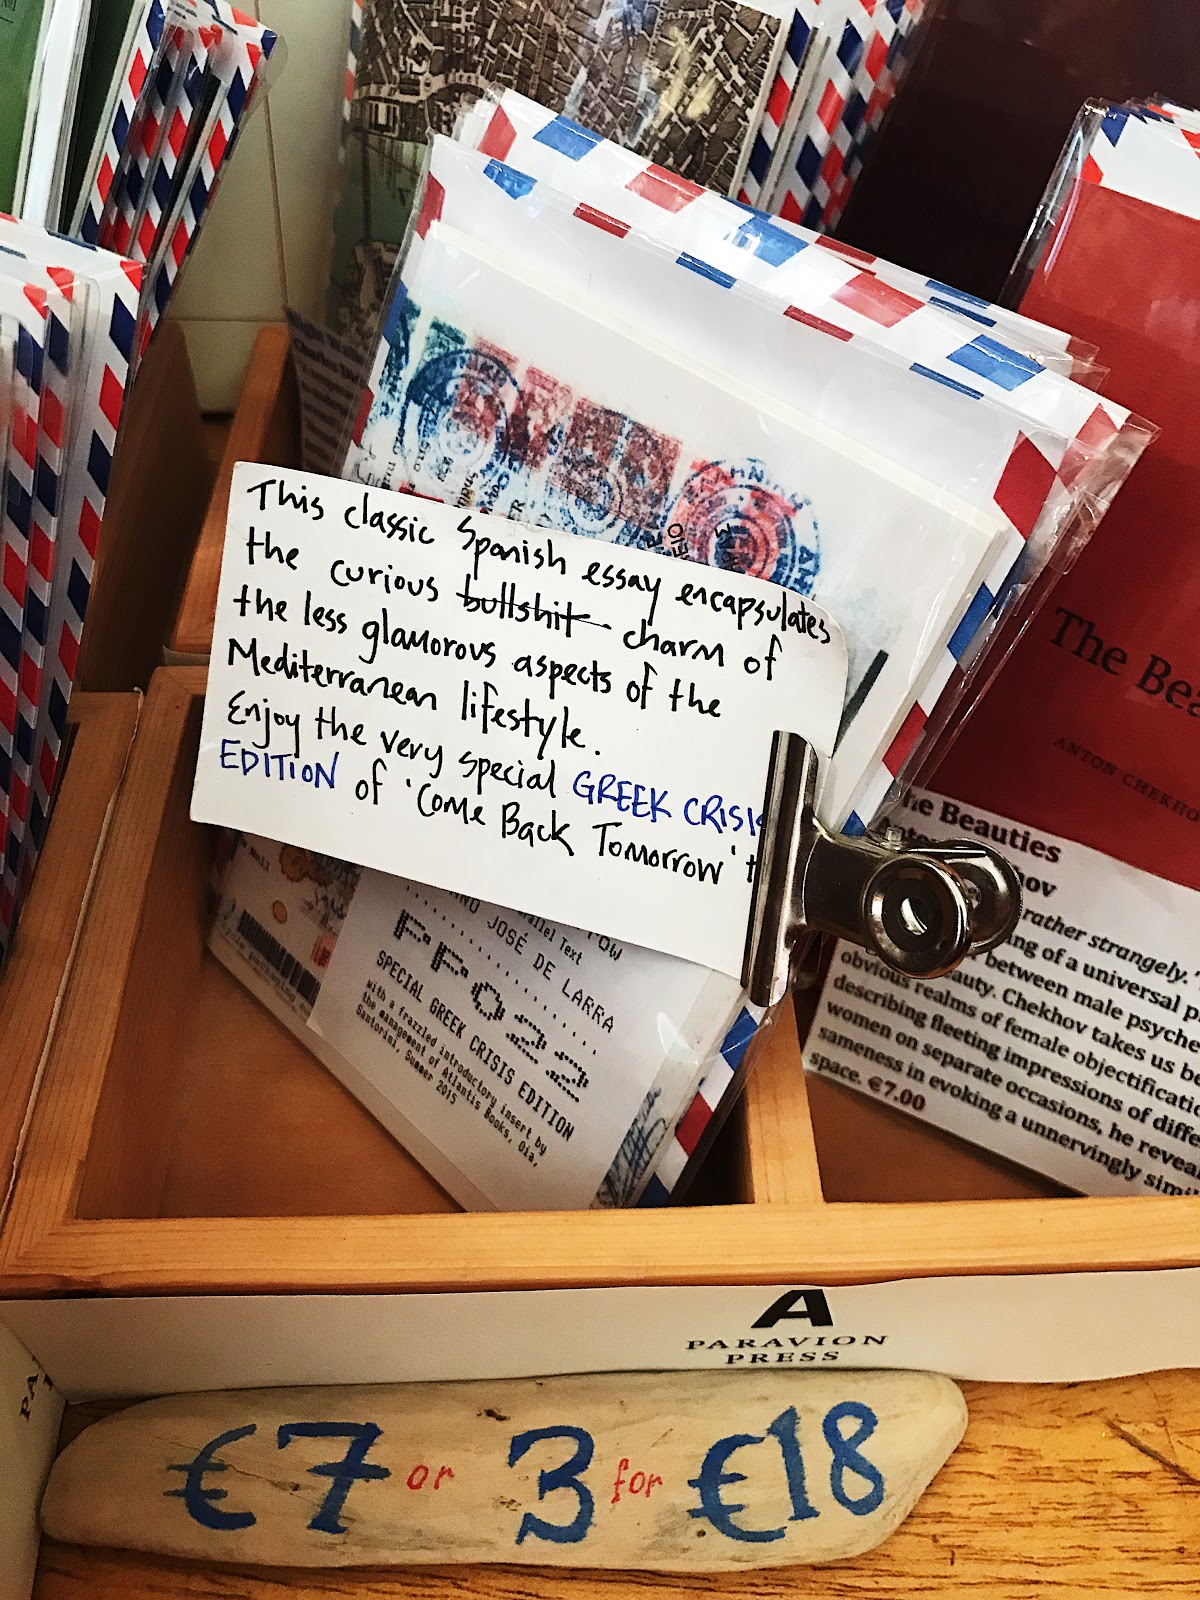 This classic Spanish essay encapsulates
the curious bullshit charm of
the less glamorous aspects of the
Mediterranean lifestyle.
Enjoy the very special GREEK CRISIS
EDITION of 'Come Back Tomorrow'
Parallel Text
JOSÉ DE LARRA
SPECIAL GREEK CRISIS EDITION
with a frazzled introductory insert by
the management of Atlantis Books, Oia,
Santorini, Summer 2015
The Bea
ANTON CHEKHO
The Beauties
rather strangely.
of a universal
between male psyche
obvious realms of beauty. Chekhov takes us be
describing fleeting impressions of female objectificatio
women on separate occasions, he revea
sameness in evoking a unnervingly simil
space. €7.00
A
PARAVION
PRESS
€7 or 3 for €18